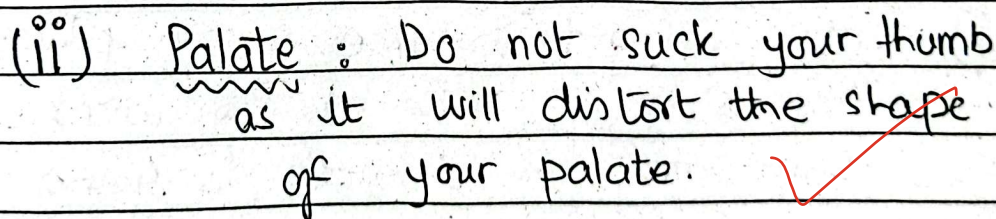 (ii) Palate : Do not suck your thumb
as it will distort the shape
of your palate.